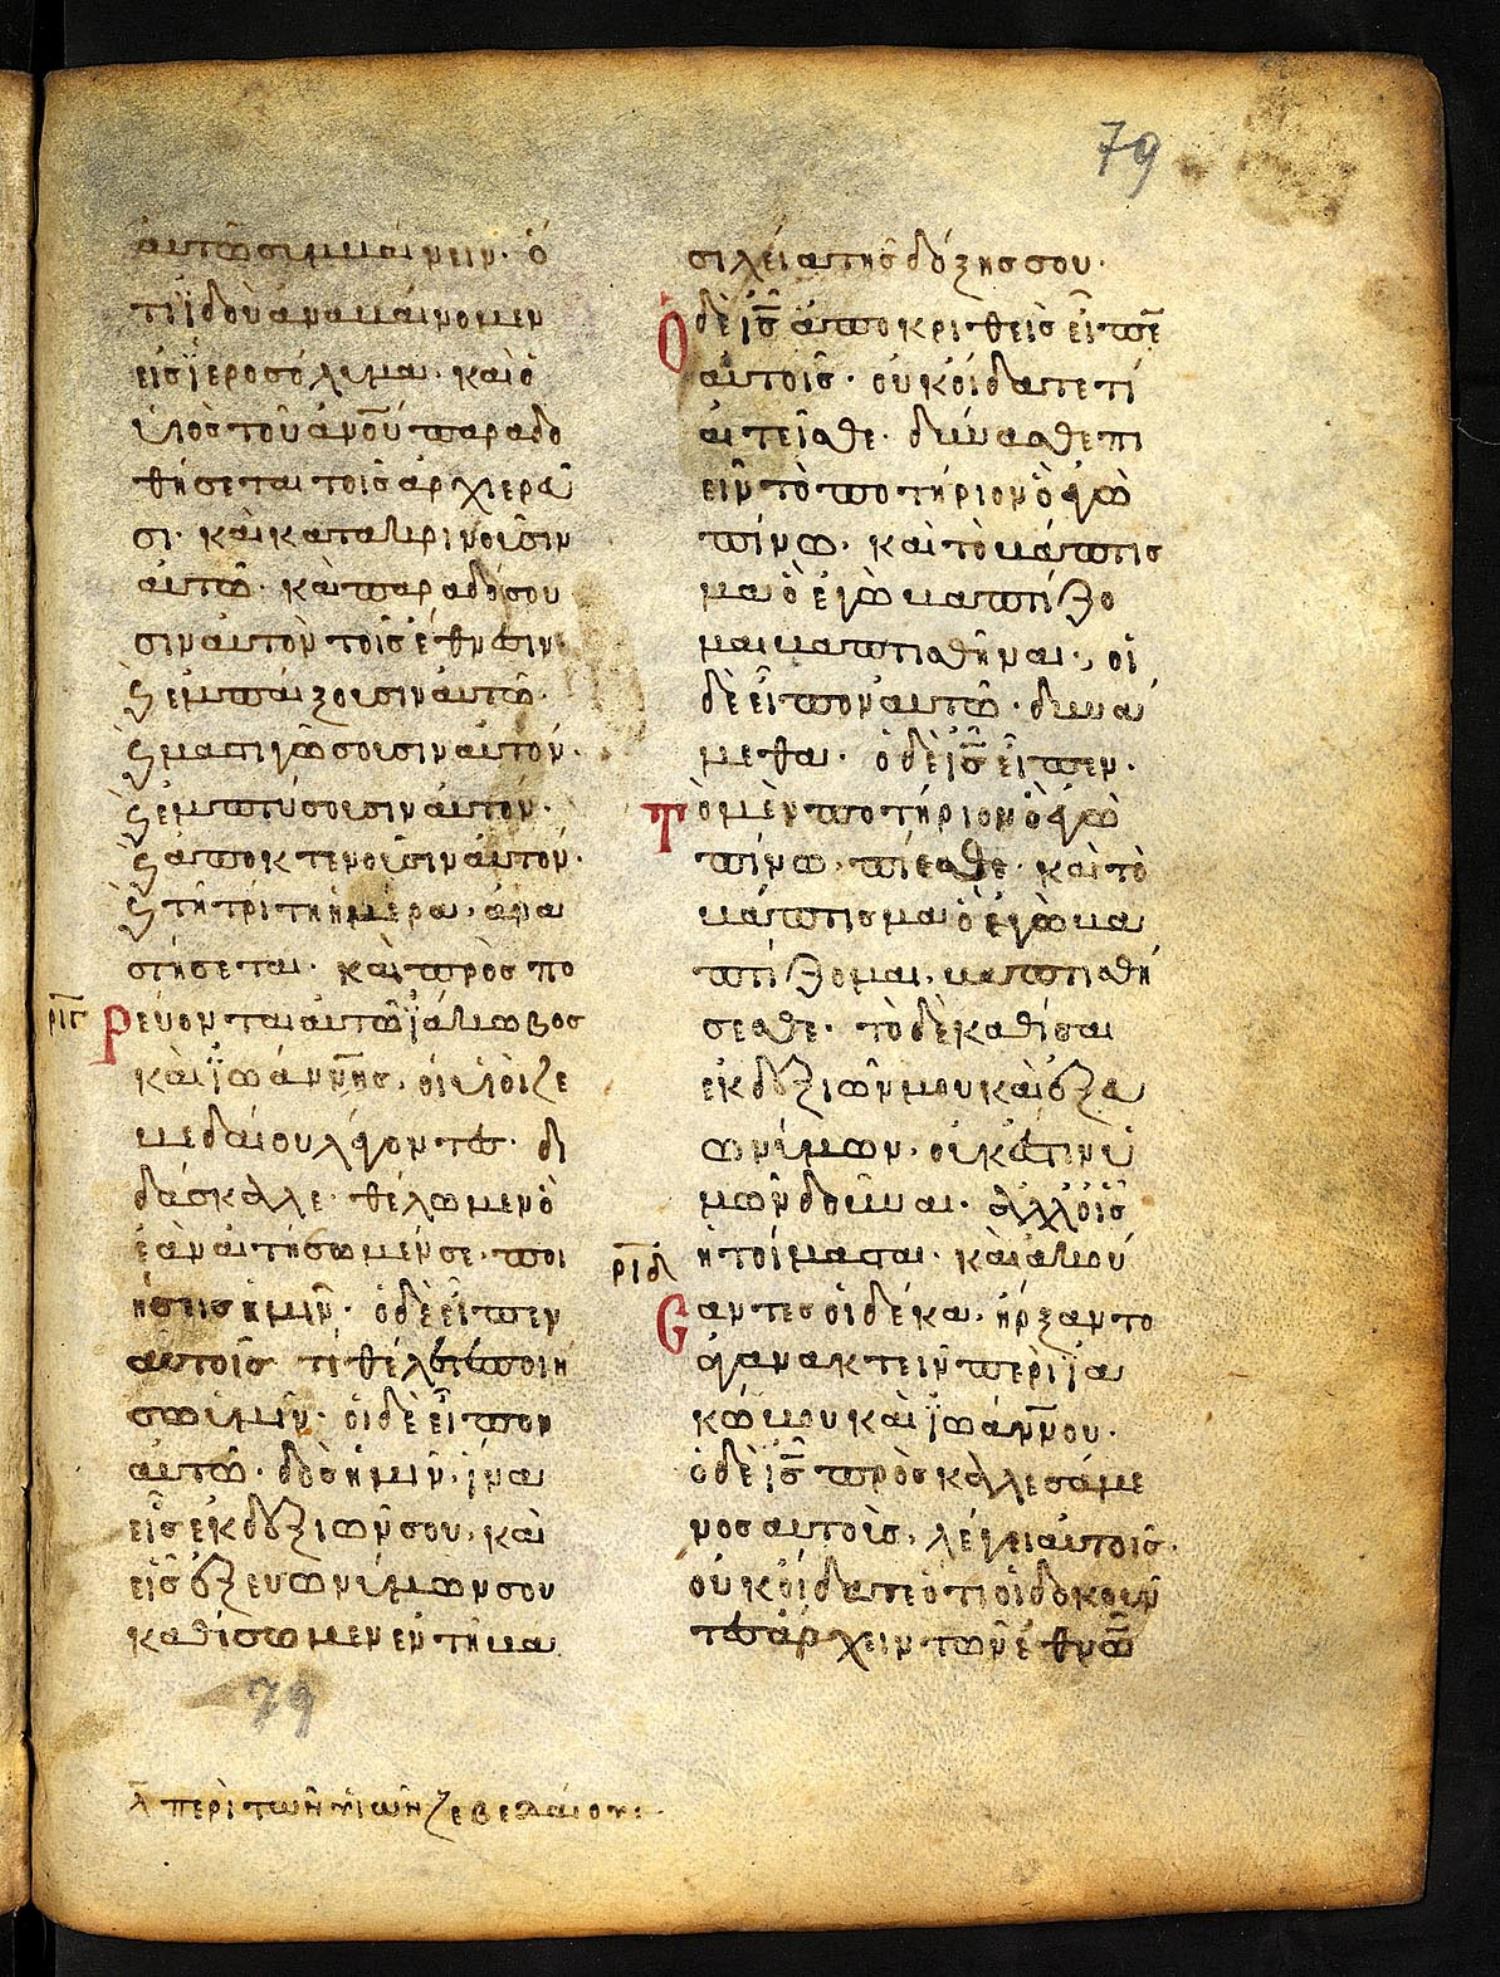 79
αυτῶ συμμβαίνειν· ὅ
τι ἰδοὺ ἀναβαίνομεν
εἰς ἱεροσόλυμα· καὶ ὁ
ὑιὸς τοῦ ἀνου παραδο
θήσεται τοῖς ἀρχιερεῦ
σι· καὶ κατακρινοῦσιν
αὐτῶ· καὶ παραδόσου
σιν αυτὸν τοῖς ἔθνεσιν·
ϛ ἐμπαίξουσιν αὐτῶ·
ϛ μαστιγώσουσιν αὐτόν·
ϛ ἐμπτύσουσιν αὐτόν·
ϛ ἀποκτενοῦσιν αὐτόν·
ϛ τῆ τρίτη ἡμέρα, ἀνα
στήσεται· καὶ πρὸσπο
ριγ ρεύονται αὐτῶ ϊάκωβος
καὶ ϊωάννης, οἱ υἱοὶ ζε
βεδαίου λέγοντες· δι
δάσκαλε· θέλωμεν ὃ
ἐὰν αιτήσωμέν σε· ποι
ήσεις ἡμῖν· ὁ δὲ εἶπεν
αυτοῖς τί θέλετε ποιή
σω ὑμῖν· οἱ δὲ εἶπον
αὐτῶ· δὸς ἡμῖν, ἵνα
εἷς ἐκ δεξιῶν σου, καὶ
εἷς ἐξ ευωνύμων σου
καθίσωμεν ἐν τῆ βα
σιλεία τῆς δόξης σου·
Ὁ δὲ ις ἀποκριθεὶς εἶπε
αὐτοῖς· οὐκ οἴδατε τί
αἰτεῖσθε· δύνασθε πι
εῖν τὸ ποτήριον ὃ ἐγὼ
πίνω· καὶ τὸ βάπτισ
μα ὃ ἐγὼ βαπτίζο
μαι βαπτισθῆναι·, οἱ
δὲ εἶπον αυτῶ· δυνά
μεθα· ὁ δὲ ις εἶπεν·
Τὸ μὲν ποτήριον ὃ ἐγὼ
πίνω, πίεσθε· καὶ τὸ
βάπτισμα ὃ ἐγὼ βα
πτίζομαι, βαπτισθή
σεσθε· τὸ δὲ καθίσαι
ἐκ δεξιῶν μου καὶ ἐξ ευ
ωνύμων· οὐκ ἔστιν ἐ
μὸν δοῦναι· ἀλλ' οἷς
ἡτοίμασται· καὶ ἀκού
ριδ Σαντες οἱ δέκα, ἤρξαντο
ἀγανακτεῖν περὶ ϊα
κώβου καὶ ϊωάννου·
ὁ δὲ ις πρὸσκαλεσάμε
νος αυτοὺς, λέγει αὐτοῖς·
οὐκ οἴδατε ὅτι οἱ δοκοῦν
τες ἄρχειν τῶν ἐθνῶ
79
λ περὶ τῶν υἱῶν ζεβεδαίου: